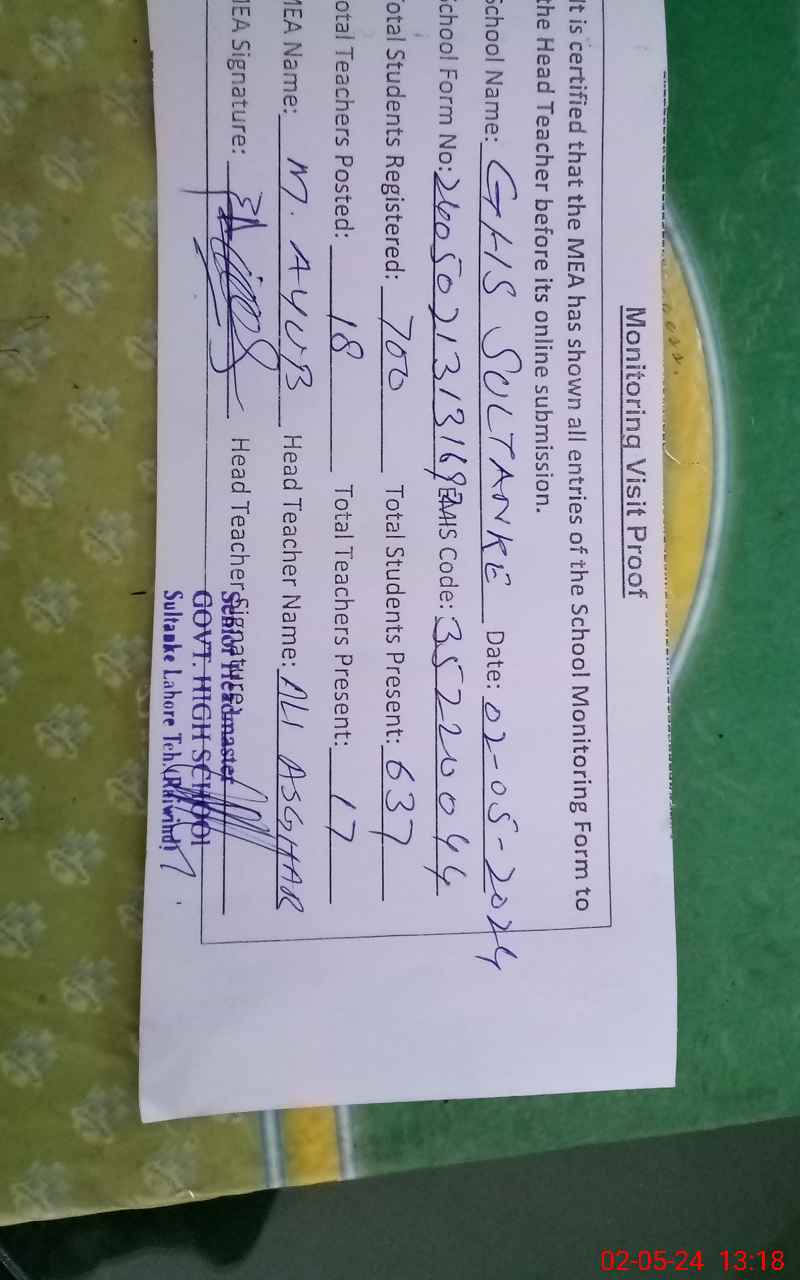 Monitoring Visit Proof
It is certified that the MEA has shown all entries of the School Monitoring Form to
the Head Teacher before its online submission.
School Name: GHS SULTANKE Date: 02-05-2024
School Form No: EMIS Code: 35220044
Total Students Registered: 700 Total Students Present: 637
Total Teachers Posted: 18 Total Teachers Present: 17
MEA Name: M. AYUB Head Teacher Name: ALI ASGHAR
MEA Signature: Head Teacher Signature:
Senior Headmaster
GOVT. HIGH SCHOOL
Sultanke Lahore Teh. (Raiwind)
02-05-24 13:18